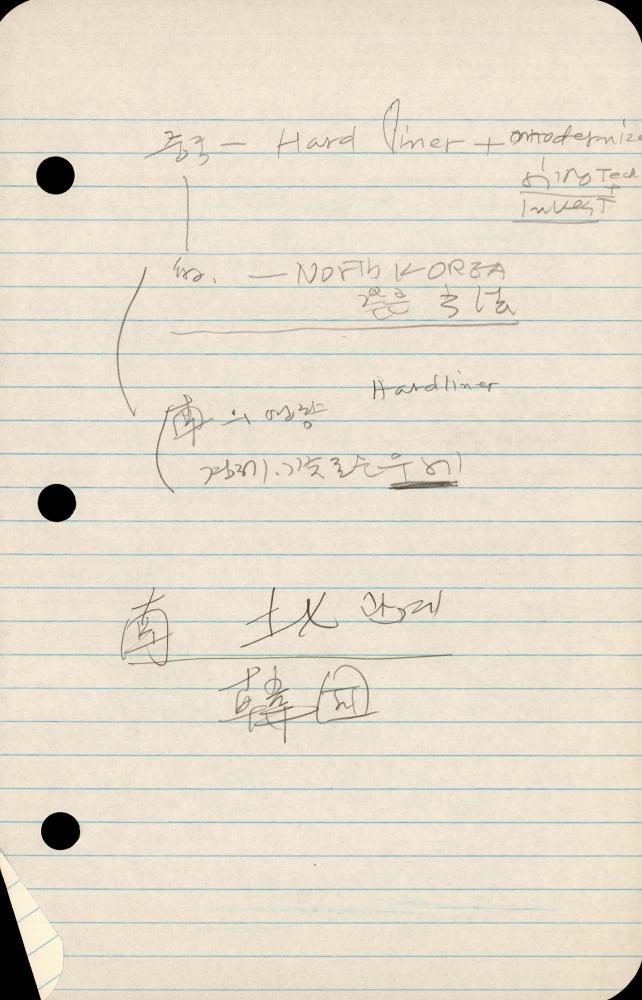 중국 — Hard liner + modernize
Tech
+
Invest
— NORTH KOREA
Hardliner
南의 영향
경제, 기술로는 우위
南 北 관계
韓国